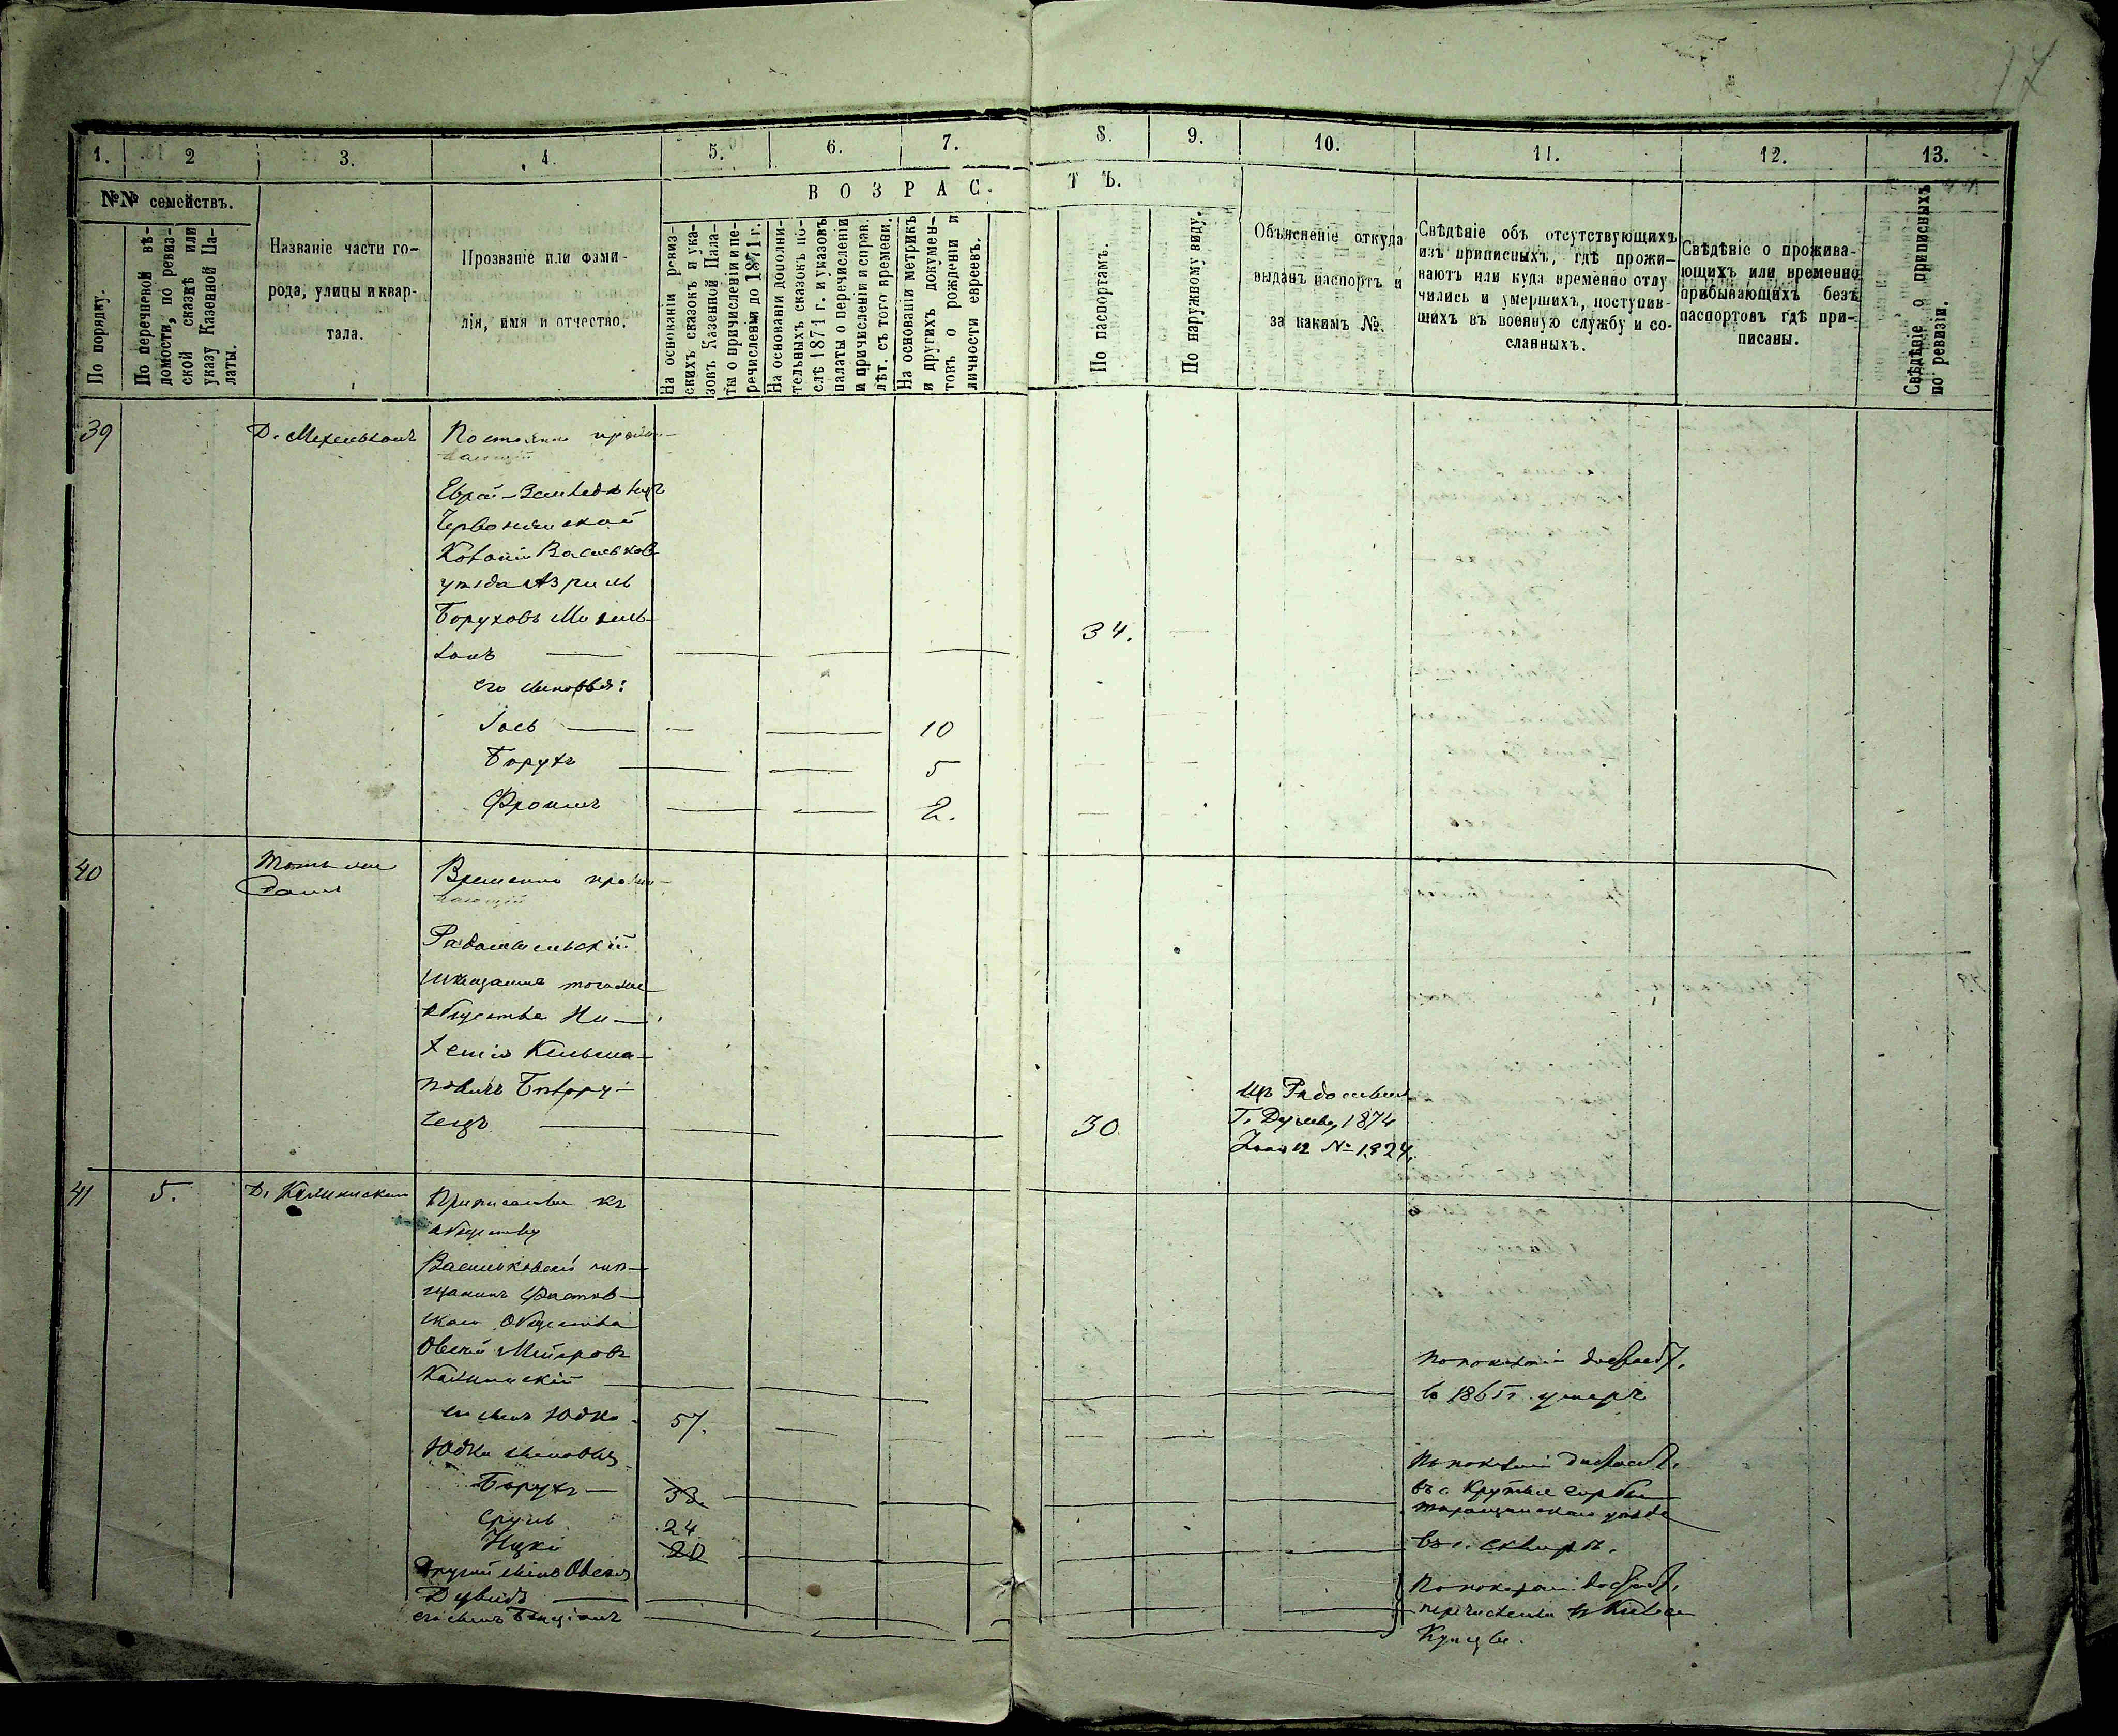 17
1. 2 3. 4. 5. 6. 7. 8. 9. 10. 11. 12. 13.
№№ семействъ.
ВОЗРАС-
ТЪ.
По порядку.
По перечневой вѣ-
домости, по ревиз-
ской сказкѣ или
указу Казенной Па-
латы.
Названіе части го-
рода, улицы и квар-
тала.
Прозваніе или фами-
лія, имя и отчество.
На основаніи ревиз-
скихъ сказокъ и ука-
зовъ Казенной Пала-
ты о причисленіи и пе-
речисленіи до 1871 г.
На основаніи дополни-
тельныхъ сказокъ по-
слѣ 1871 г. и указовъ
палаты о перечисленіи
и причисленіи и справ.
лѣт. съ того времени.
На основаніи метрикъ
и другихъ докумен-
товъ о рожденіи и
личности евреевъ.
По паспортамъ.
По наружному виду.
Объясненіе откуда
выданъ паспортъ и
за какимъ №.
Свѣдѣніе объ отсутствующихъ
изъ приписныхъ, гдѣ прожи-
ваютъ или куда временно отлу
чились и умершихъ, поступив-
шихъ въ военную службу и со-
сланныхъ.
Свѣдѣніе о прожива-
ющихъ или временно
прибывающихъ безъ
паспортовъ гдѣ при-
писаны.
Свѣдѣніе о приписныхъ
по ревизіи.
39
Постоянно прожи-
вающій
Еврей-Земледѣлецъ
Червонянской
Колоніи Васильков
уѣзда Азриль
Боруховъ Михель-
сонъ 34.
его сыновья:
Іось 10
Борухъ 5
Фроимъ 2.
40 Тотъ же
домъ
Временно прожи-
вающій
Радомысльскій
мѣщанинъ того же
общества Ну-
Кельма-
новичъ
30
Г. Думы, 1874
12 № 1824.
41 5.
Приписанные къ
обществу
Васильковскій мѣ-
щанинъ Фастов-
скаго общества
Овсей Мейеровъ
По показанію
въ 1865 г. умеръ
его сынъ Юдко 57.
Юдки сыновья
Борухъ 33.
По показанію
въ с. Крутые горбы
таращанскаго уѣзда
Сруль 24
Ицко 20
въ г. Сквирѣ.
Другой сынъ Овсея
Дувидъ
его сынъ Бенціонъ
По показанію
перечислены въ Кіевск
Купцы.